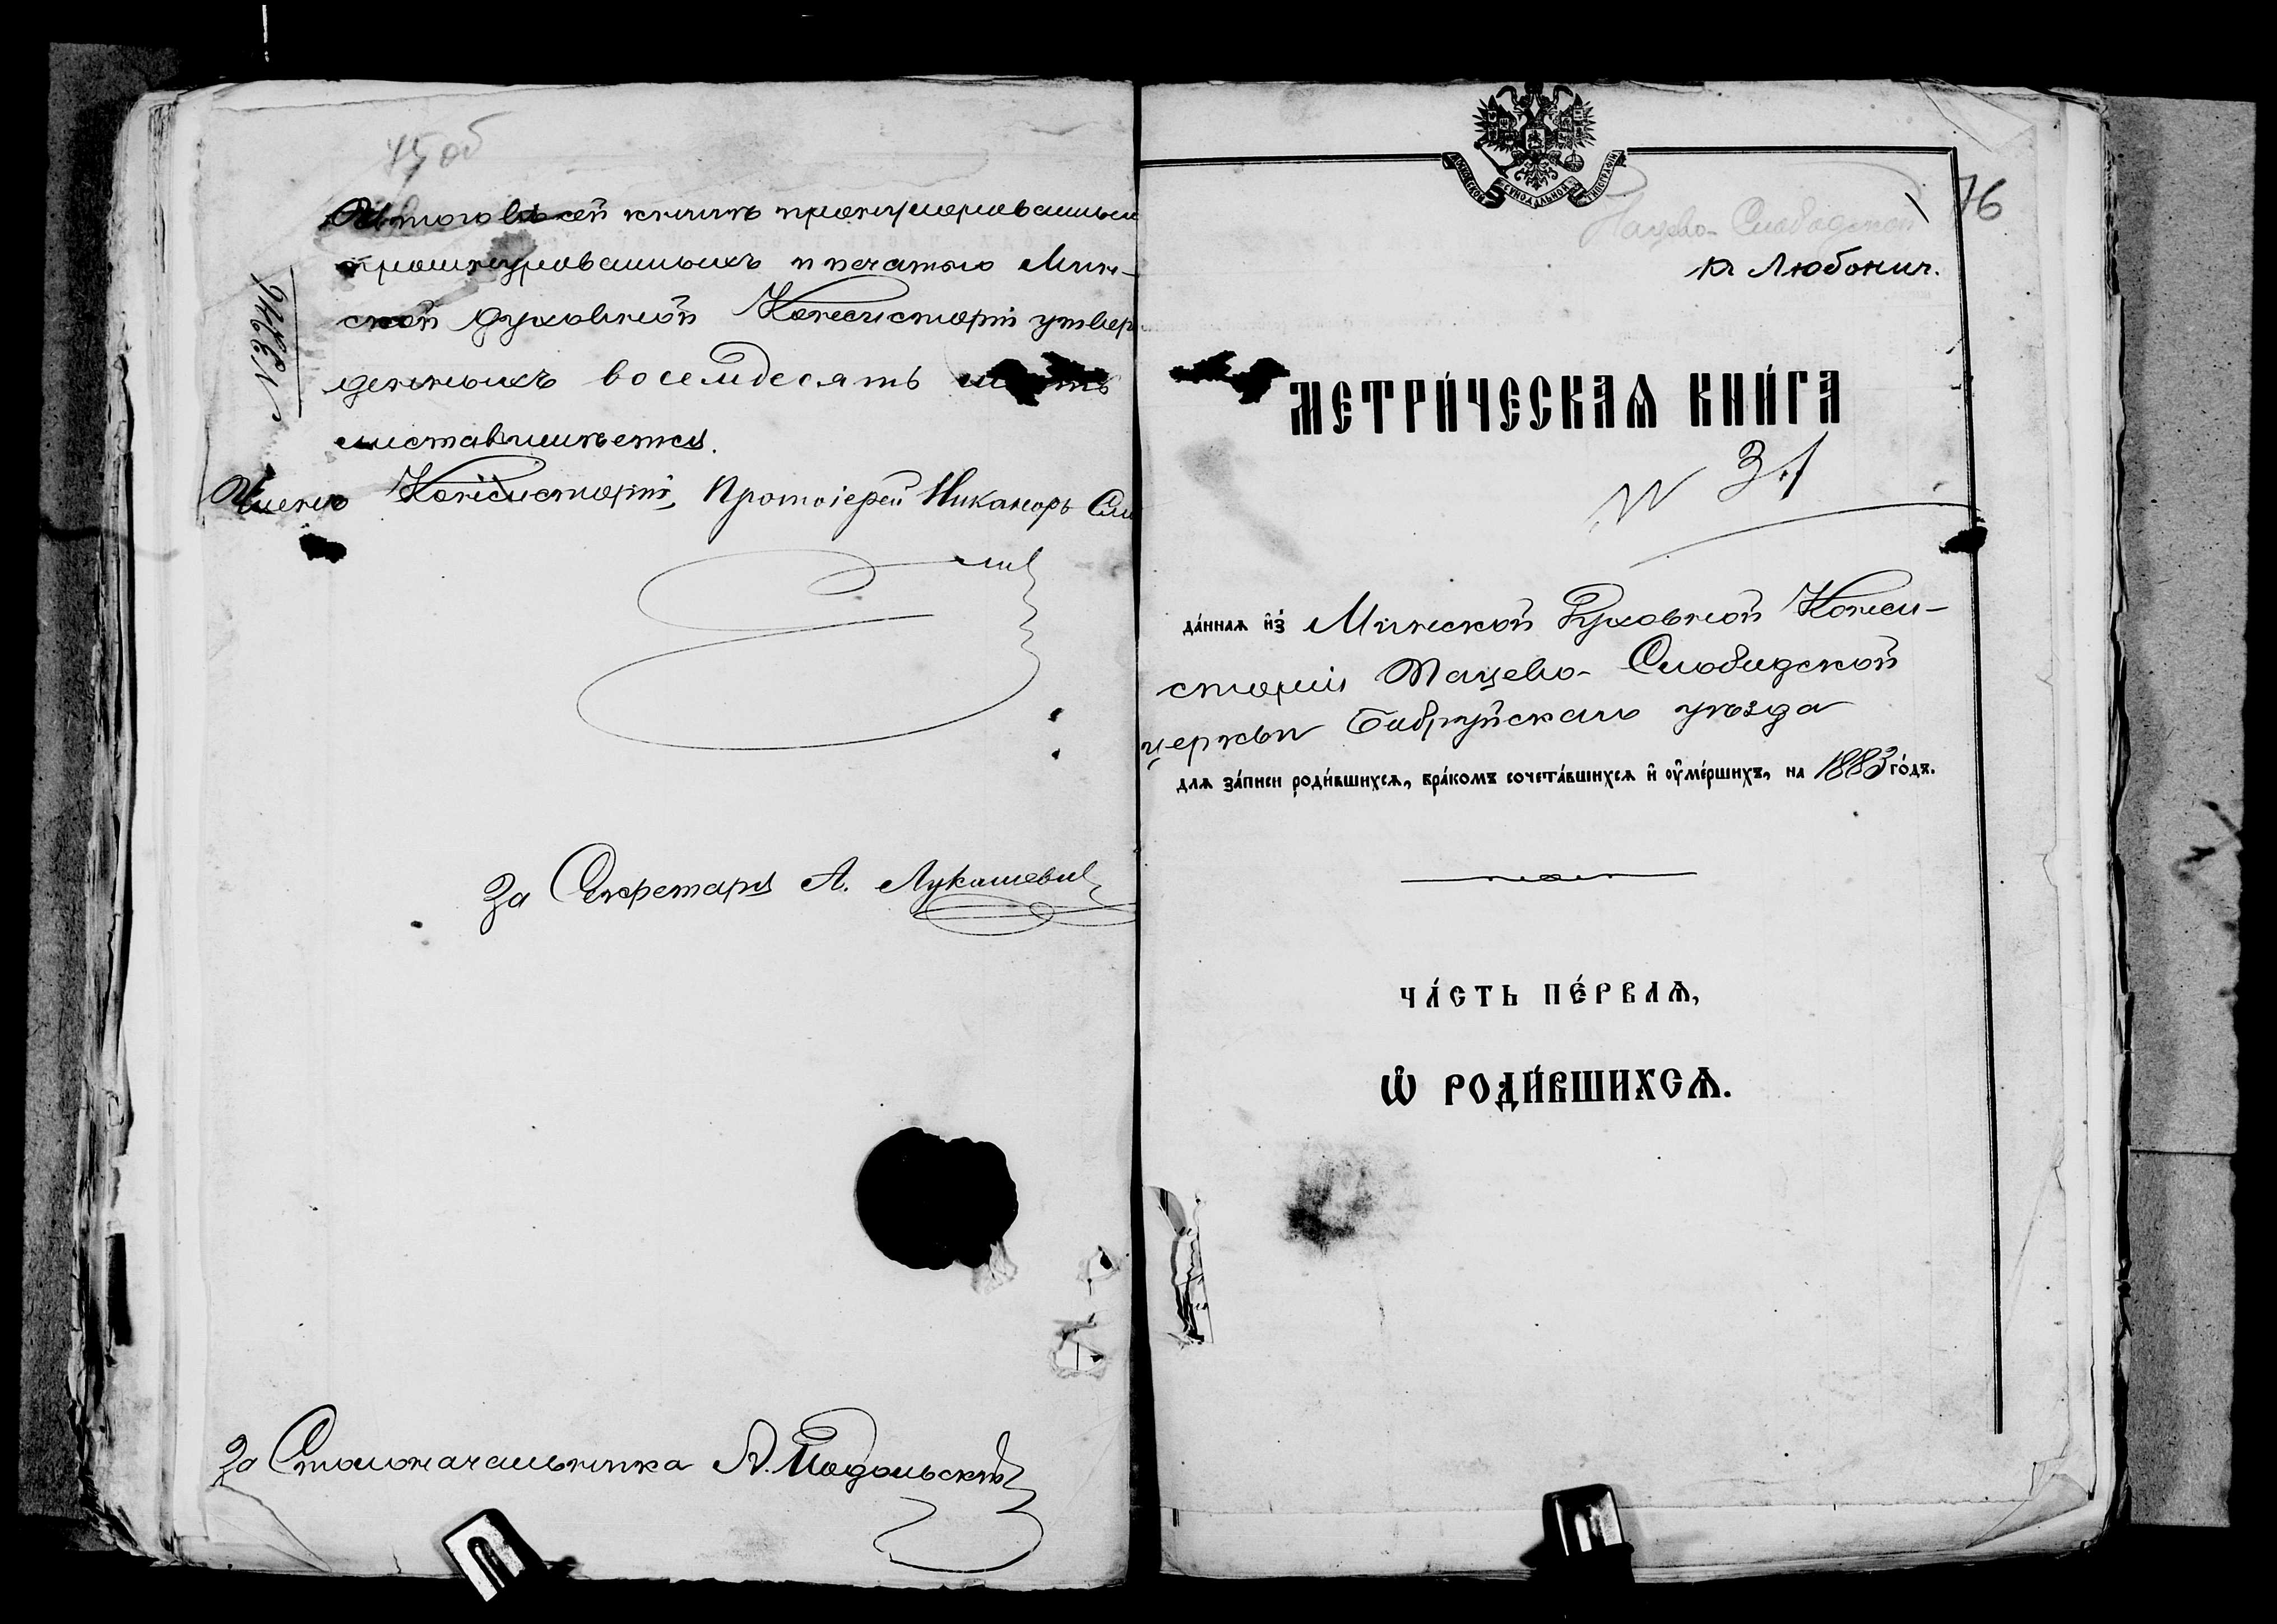 75 об
Итого въ сей книгѣ пронумерованныхъ
прошнурованныхъ и печатью Мин-
ской Духовной Консисторіи утвер
жденныхъ восемдесятъ
листовъ имѣется.
Членъ Консисторіи, Протоіерей Никаноръ
За Секретаря А. Лукашевич
За Столоначальника А. Подольскій
МОСКОВСКОЙ СѴНОДАЛЬНОЙ ТИПОГРАФІИ
76
Тацево-Слободской
к Любонич.
МЕТРИ́ЧЕСКАѦ КНИ́ГА
N 31
да́ннаѧ и҆з̾ Минской Духовной Конси-
сторіи Тацево-Слободской
церкви Бобруйскаго уѣзда
длѧ за́писи роди́вшихсѧ, бра́комъ сочета́вшихсѧ и҆ ᲂу҆ме́ршихъ, на 1883 го́дъ.
ЧА́СТЬ ПЕ́РВАѦ,
Ѽ РОДИ́ВШИХСѦ.